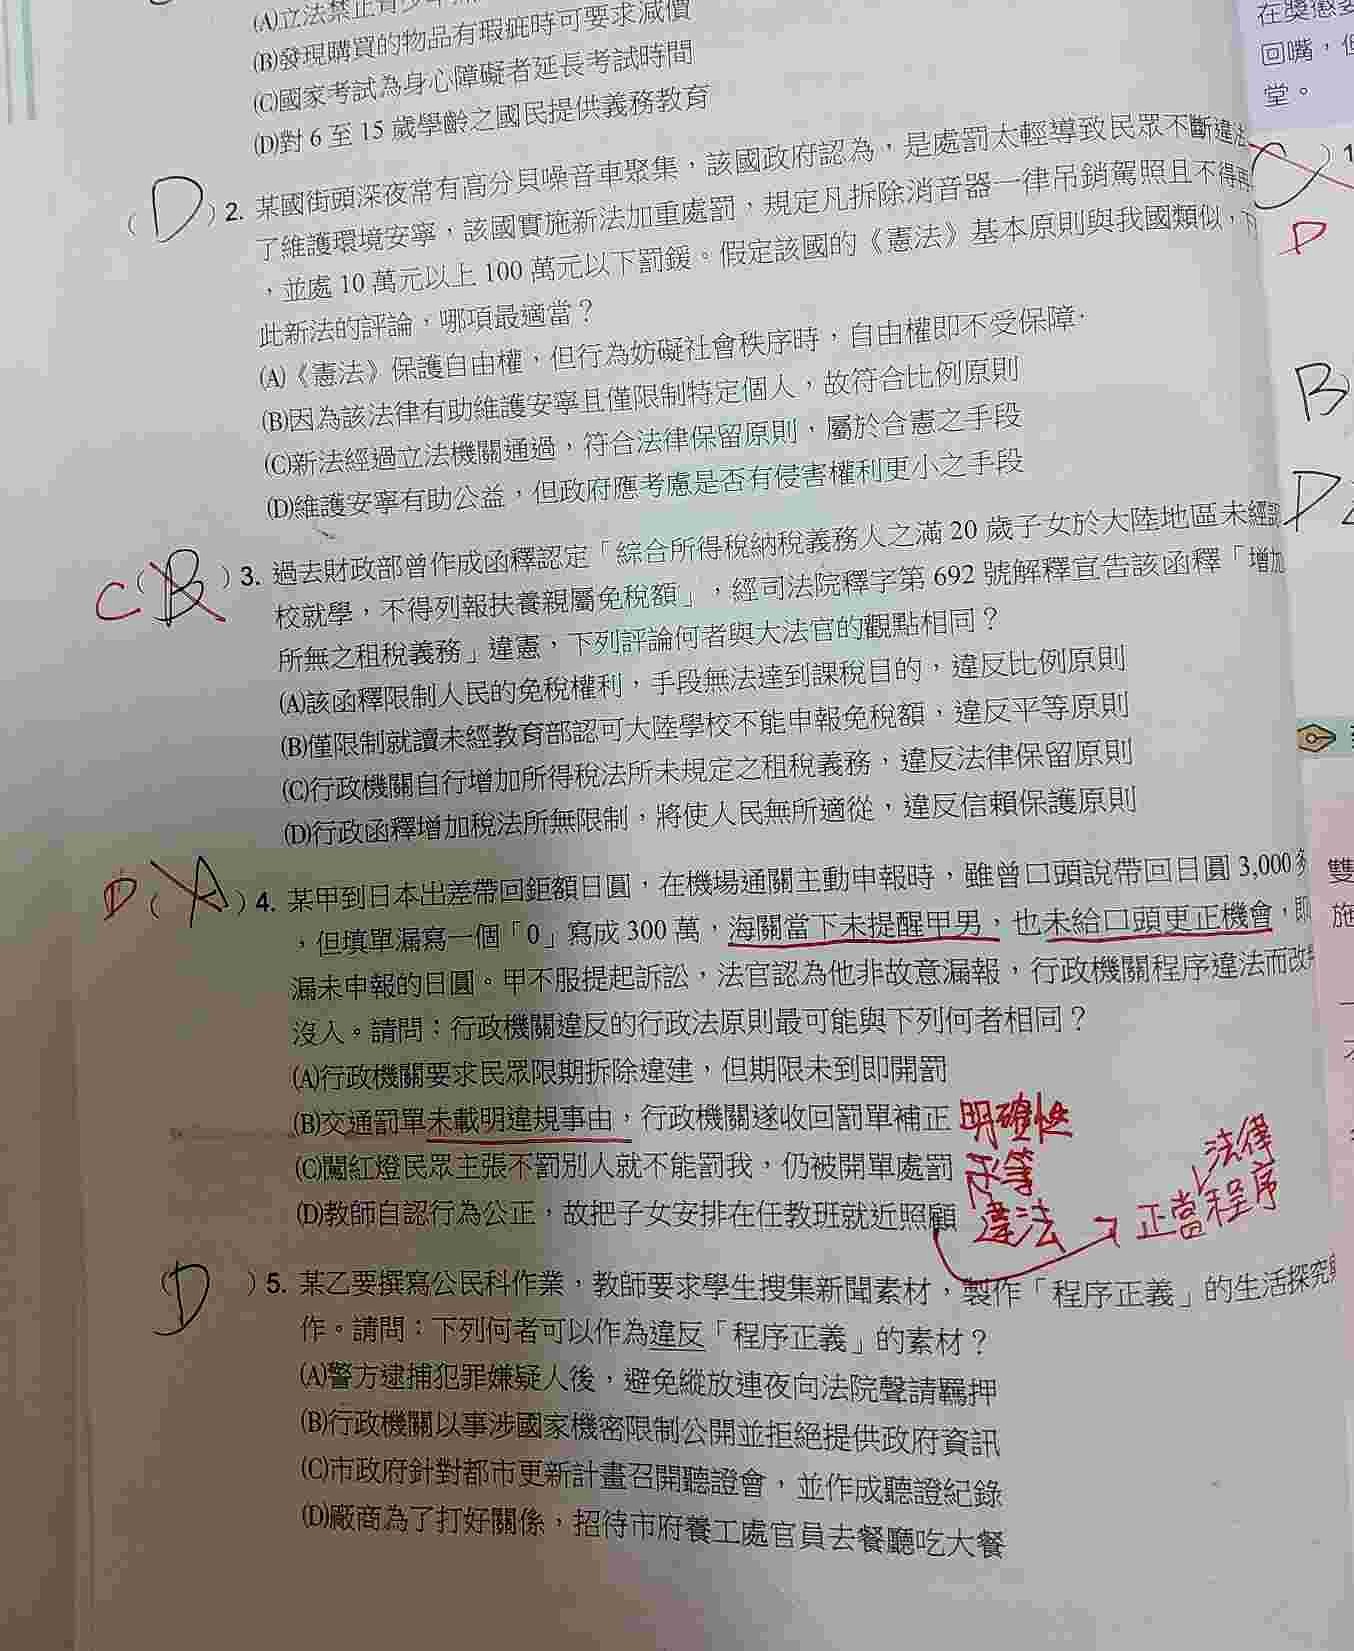 (A)立法禁止青少年
(B)發現購買的物品有瑕疵時可要求減價
(C)國家考試為身心障礙者延長考試時間
(D)對 6 至 15 歲學齡之國民提供義務教育
( D ) 2. 某國街頭深夜常有高分貝噪音車聚集，該國政府認為，是處罰太輕導致民眾不斷違法
了維護環境安寧，該國實施新法加重處罰，規定凡拆除消音器一律吊銷駕照且不得再
，並處 10 萬元以上 100 萬元以下罰鍰。假定該國的《憲法》基本原則與我國類似，下
此新法的評論，哪項最適當？
(A)《憲法》保護自由權，但行為妨礙社會秩序時，自由權即不受保障
(B)因為該法律有助維護安寧且僅限制特定個人，故符合比例原則
(C)新法經過立法機關通過，符合法律保留原則，屬於合憲之手段
(D)維護安寧有助公益，但政府應考慮是否有侵害權利更小之手段
C ( B ) 3. 過去財政部曾作成函釋認定「綜合所得稅納稅義務人之滿 20 歲子女於大陸地區未經認
校就學，不得列報扶養親屬免稅額」，經司法院釋字第 692 號解釋宣告該函釋「增加
所無之租稅義務」違憲，下列評論何者與大法官的觀點相同？
(A)該函釋限制人民的免稅權利，手段無法達到課稅目的，違反比例原則
(B)僅限制就讀未經教育部認可大陸學校不能申報免稅額，違反平等原則
(C)行政機關自行增加所得稅法所未規定之租稅義務，違反法律保留原則
(D)行政函釋增加稅法所無限制，將使人民無所適從，違反信賴保護原則
D ( A ) 4. 某甲到日本出差帶回鉅額日圓，在機場通關主動申報時，雖曾口頭說帶回日圓 3,000 多
，但填單漏寫一個「0」寫成 300 萬，海關當下未提醒甲男，也未給口頭更正機會，即
漏未申報的日圓。甲不服提起訴訟，法官認為他非故意漏報，行政機關程序違法而改判
沒入。請問：行政機關違反的行政法原則最可能與下列何者相同？
(A)行政機關要求民眾限期拆除違建，但期限未到即開罰
(B)交通罰單未載明違規事由，行政機關遂收回罰單補正 明確性
(C)闖紅燈民眾主張不罰別人就不能罰我，仍被開單處罰 平等
(D)教師自認行為公正，故把子女安排在任教班就近照顧 違法 → 正當法律程序
( D ) 5. 某乙要撰寫公民科作業，教師要求學生搜集新聞素材，製作「程序正義」的生活探究
作。請問：下列何者可以作為違反「程序正義」的素材？
(A)警方逮捕犯罪嫌疑人後，避免縱放連夜向法院聲請羈押
(B)行政機關以事涉國家機密限制公開並拒絕提供政府資訊
(C)市政府針對都市更新計畫召開聽證會，並作成聽證紀錄
(D)廠商為了打好關係，招待市府養工處官員去餐廳吃大餐
在獎懲
回嘴，但
堂。
C ) 1
D
B
D
雙
施